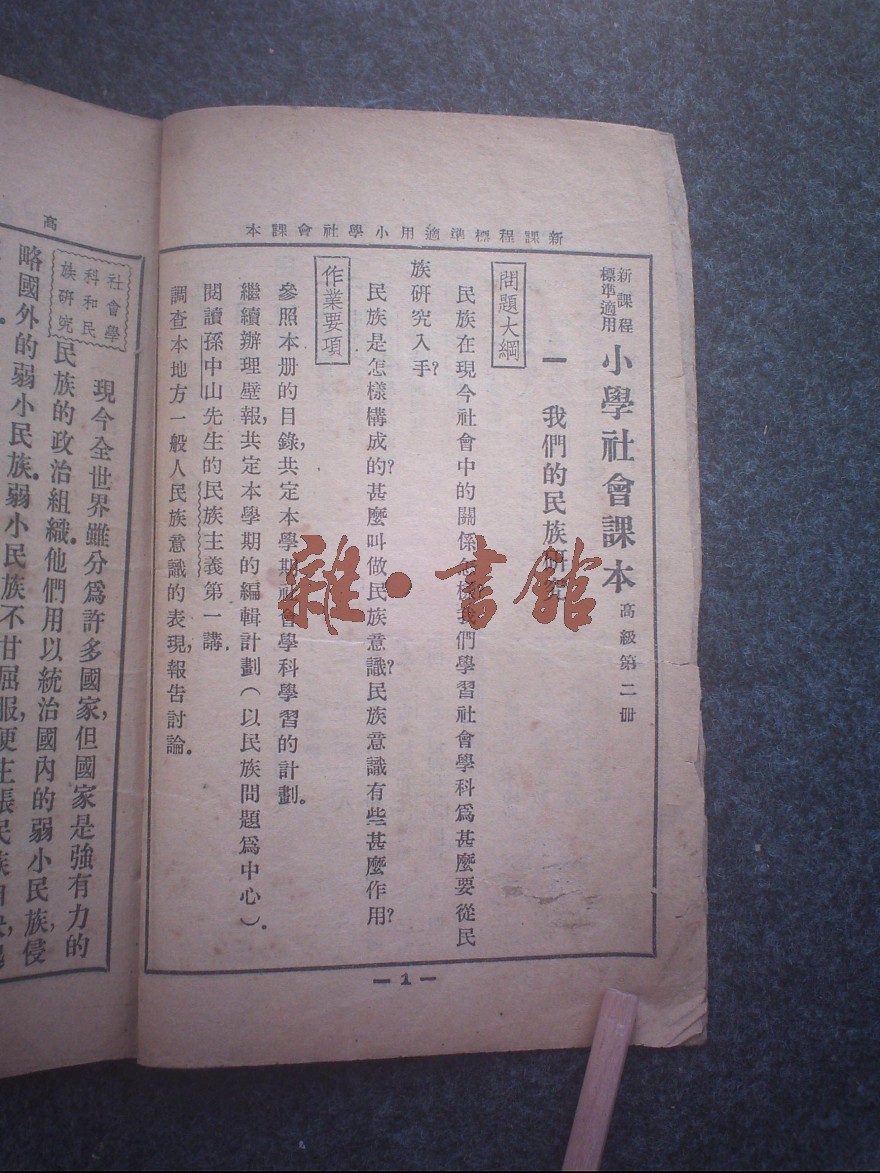 新課程標準適用小學社會課本
新課程
標準適用
小學社會課本
高級第二冊
一 我們的民族研究
問題大綱
民族在現今社會中的關係怎樣?我們學習社會學科爲甚麼要從民
族研究入手?
民族是怎樣構成的?甚麼叫做民族意識?民族意識有些甚麼作用?
作業要項
參照本册的目錄,共定本學期社會學科學習的計劃。
繼續辦理壁報,共定本學期的編輯計劃(以民族問題爲中心)。
閱讀孫中山先生的民族主義第一講。
調查本地方一般人民族意識的表現,報告討論。
1
雜·書館
高
社會學
科和民
族研究
現今全世界雖分爲許多國家,但國家是強有力的
民族的政治組織。他們用以統治國內的弱小民族,侵
略國外的弱小民族。弱小民族不甘屈服,便主張民族自決,